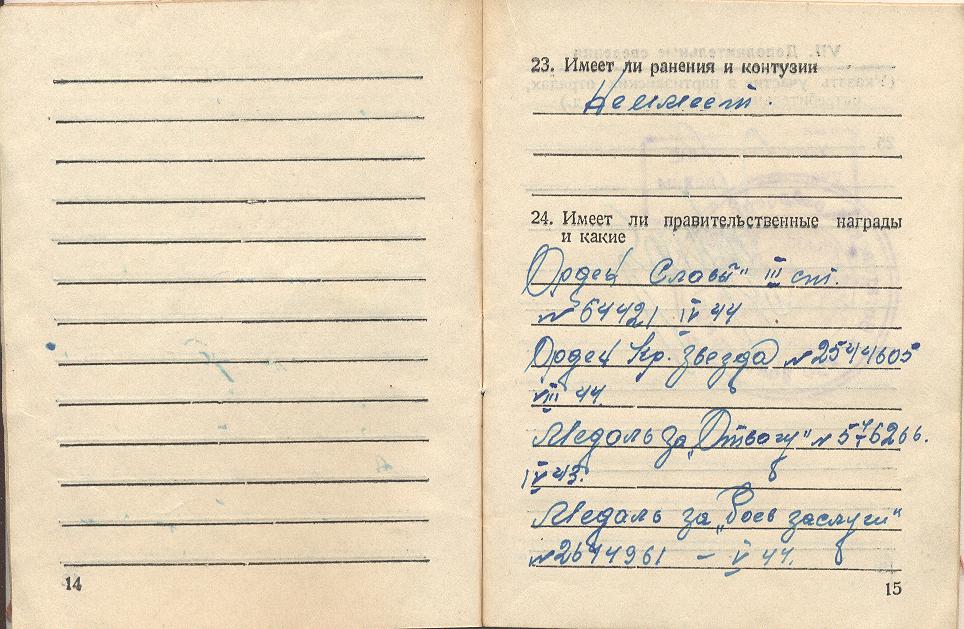 14
23. Имеет ли ранения и контузии
Не имеет.
24. Имеет ли правительственные награды
и какие
Орден Славы" III ст.
№ 64421 IV 44
Орден Кр. Звезда №
VIII 44.
Медаль за „Отвагу" №
IV 43.
Медаль за „Боев заслуги"
№ 2644961 – V 44.
15